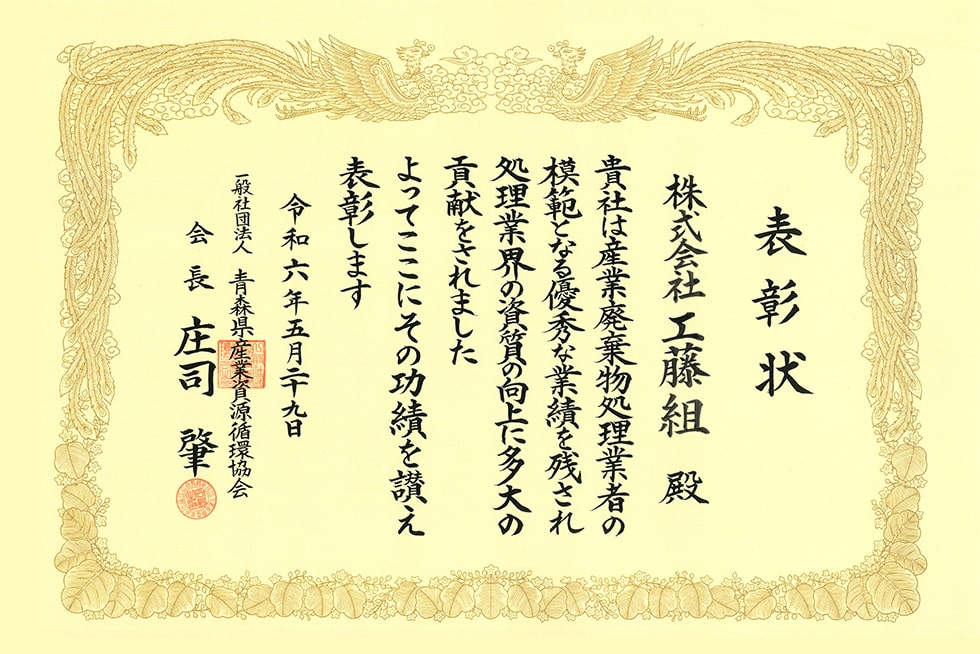 表彰状
株式会社 工藤組 殿
貴社は産業廃棄物処理業者の
模範となる優秀な業績を残され
処理業界の資質の向上に多大の
貢献をされました
よってここにその功績を讃え
表彰します
令和六年五月二十九日
一般社団法人 青森県産業資源循環協会
会長 庄司 肇